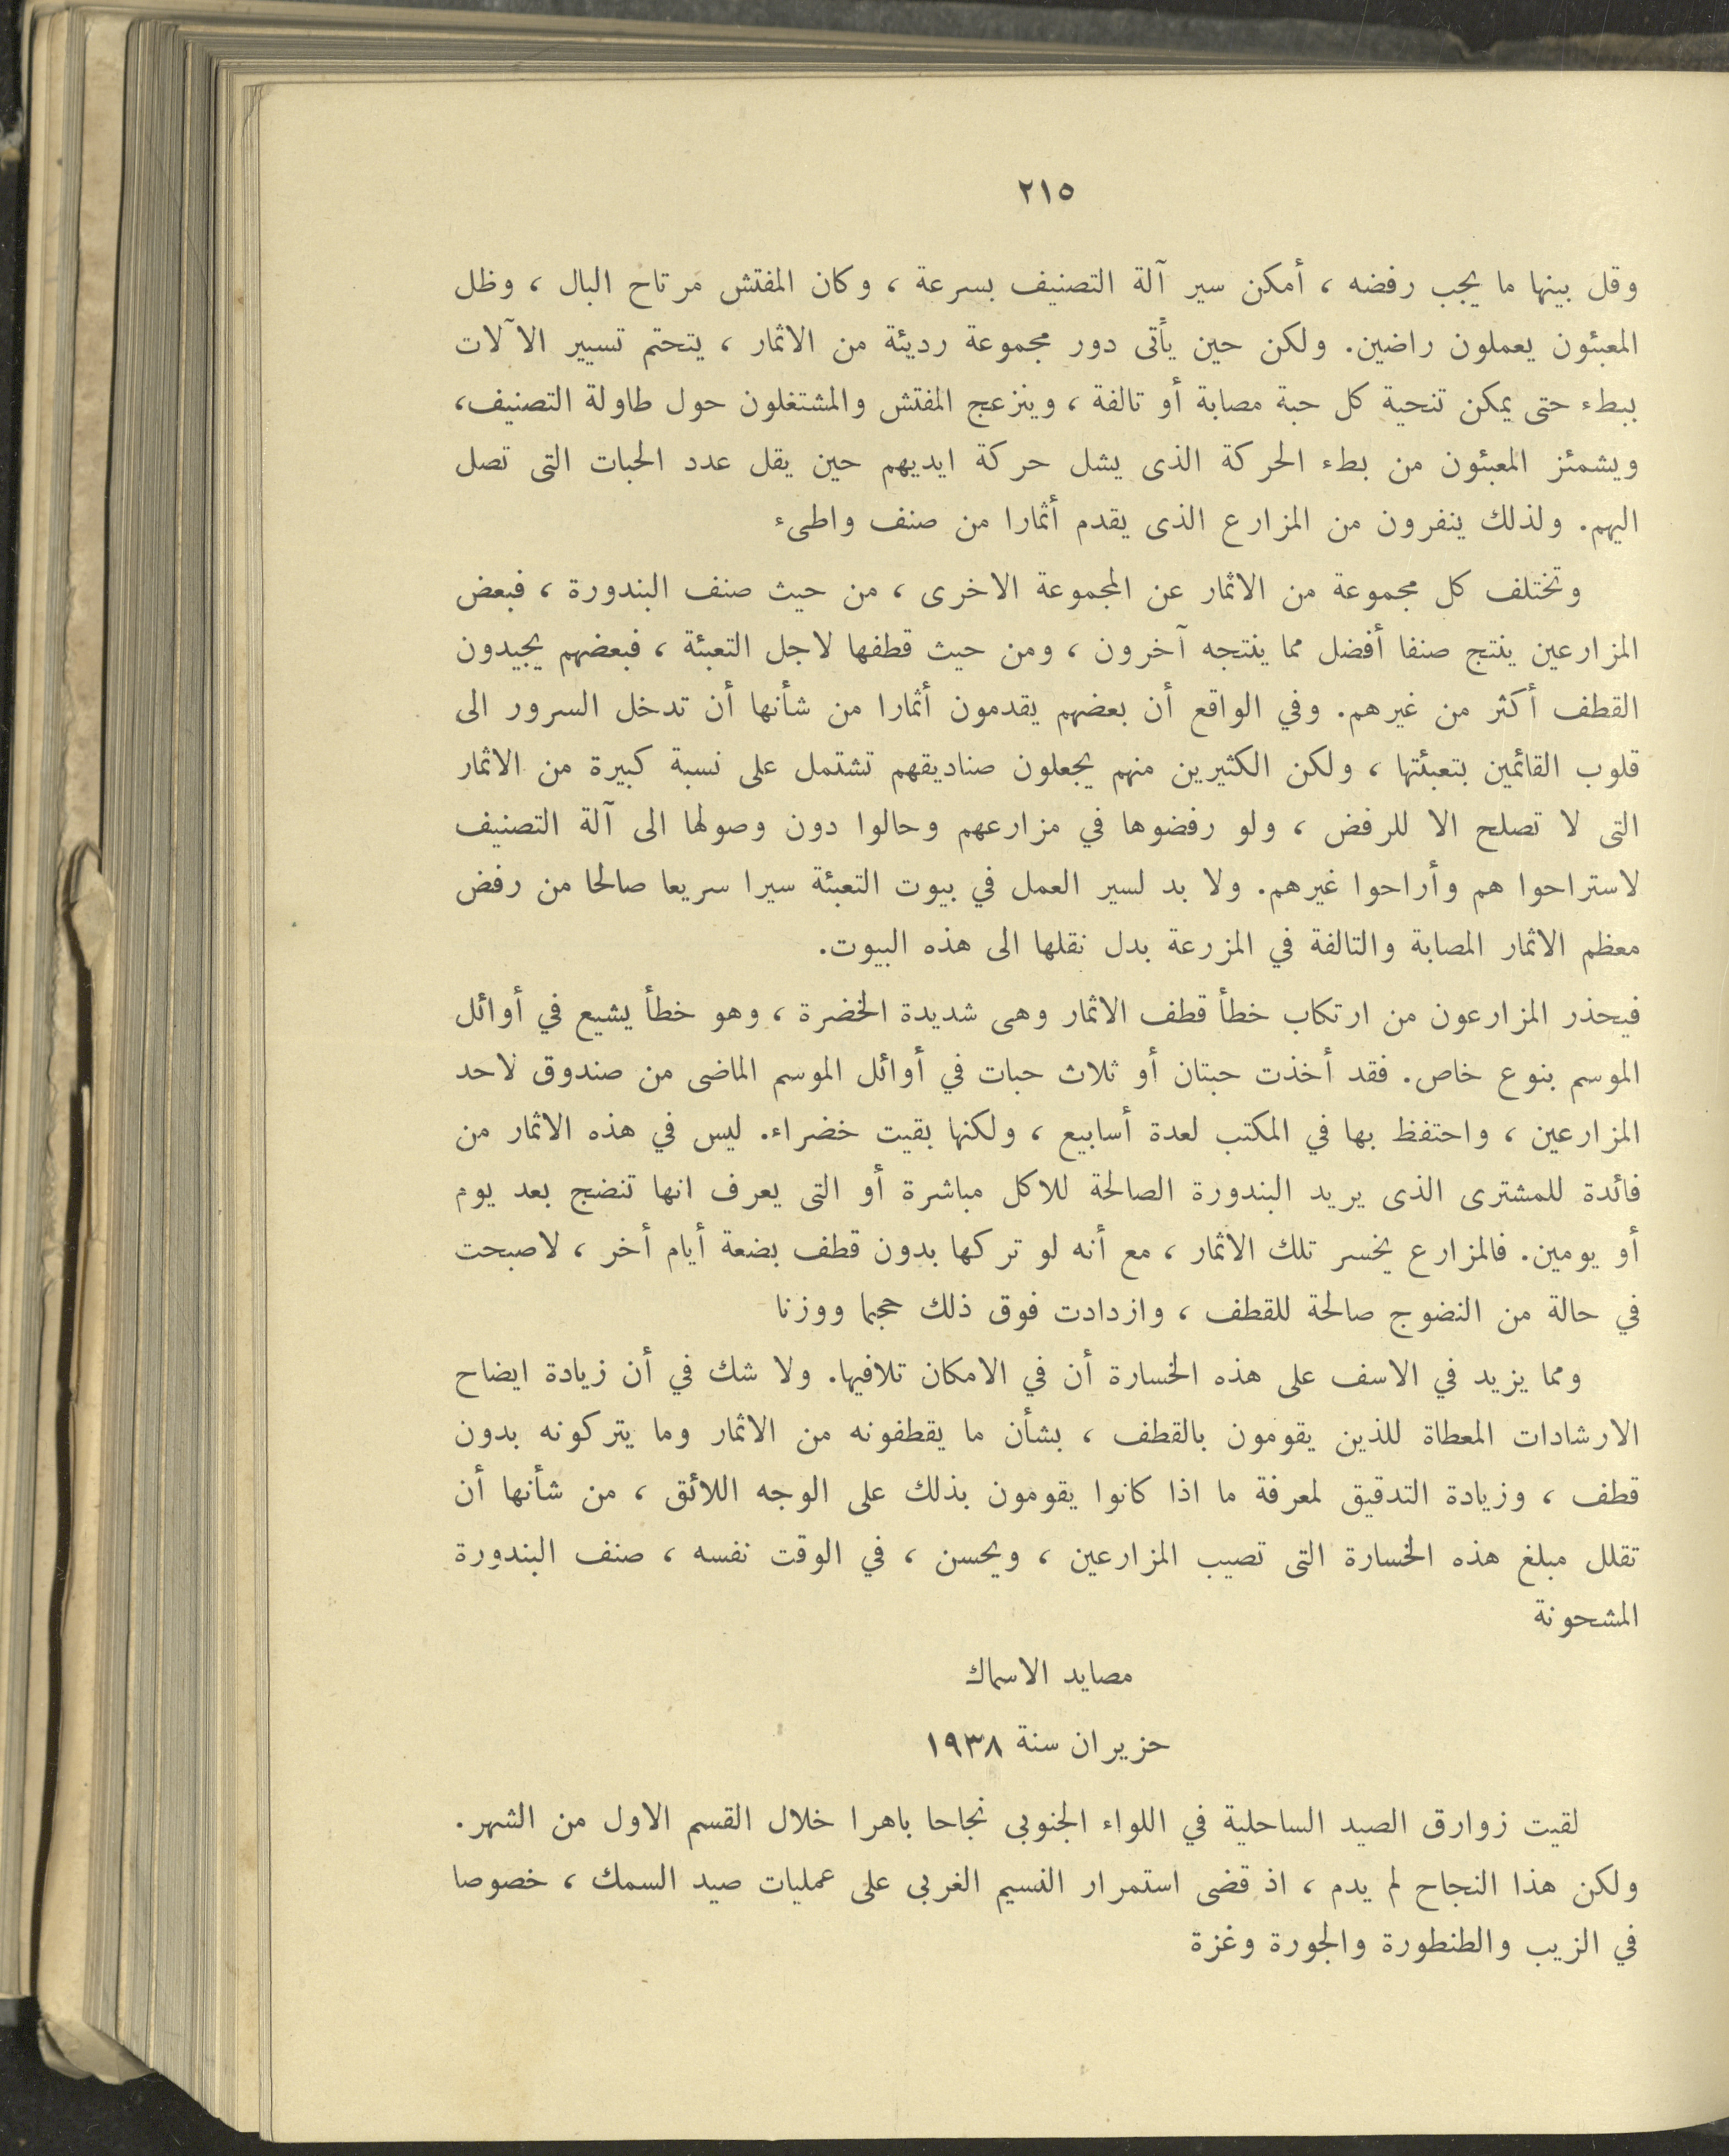 ٢١٥
وقل بينها ما يجب رفضه ، أمكن سير آلة التصنيف بسرعة ، وكان المفتش مرتاح البال ، وظل
المعبئون يعملون راضين. ولكن حين يأتى دور مجموعة رديئة من الاثمار ، يتحتم تسيير الآلات
ببطء حتى يمكن تنحية كل حبة مصابة أو تالفة ، وينزعج المفتش والمشتغلون حول طاولة التصنيف،
ويشمئز المعبئون من بطء الحركة الذى يشل حركة ايديهم حين يقل عدد الحبات التى تصل
اليهم. ولذلك ينفرون من المزارع الذى يقدم أثمارا من صنف واطىء
وتختلف كل مجموعة من الاثمار عن المجموعة الاخرى ، من حيث صنف البندورة ، فبعض
المزارعين ينتج صنفا أفضل مما ينتجه آخرون ، ومن حيث قطفها لاجل التعبئة ، فبعضهم يجيدون
القطف أكثر من غيرهم. وفي الواقع أن بعضهم يقدمون أثمارا من شأنها أن تدخل السرور الى
قلوب القائمين بتعبئتها ، ولكن الكثيرين منهم يجعلون صناديقهم تشتمل على نسبة كبيرة من الاثمار
التى لا تصلح الا للرفض ، ولو رفضوها في مزارعهم وحالوا دون وصولها الى آلة التصنيف
لاستراحوا هم وأراحوا غيرهم. ولا بد لسير العمل في بيوت التعبئة سيرا سريعا صالحا من رفض
معظم الاثمار المصابة والتالفة في المزرعة بدل نقلها الى هذه البيوت.
فيحذر المزارعون من ارتكاب خطأ قطف الاثمار وهى شديدة الخضرة ، وهو خطأ يشيع في أوائل
الموسم بنوع خاص. فقد أخذت حبتان أو ثلاث حبات في أوائل الموسم الماضى من صندوق لاحد
المزارعين ، واحتفظ بها في المكتب لعدة أسابيع ، ولكنها بقيت خضراء. ليس في هذه الاثمار من
فائدة للمشترى الذى يريد البندورة الصالحة للاكل مباشرة أو التى يعرف انها تنضج بعد يوم
أو يومين. فالمزارع يخسر تلك الاثمار ، مع أنه لو تركها بدون قطف بضعة أيام أخر ، لاصبحت
في حالة من النضوج صالحة للقطف ، وازدادت فوق ذلك حجما ووزنا
ومما يزيد في الاسف على هذه الخسارة أن في الامكان تلافيها. ولا شك في أن زيادة ايضاح
الارشادات المعطاة للذين يقومون بالقطف ، بشأن ما يقطفونه من الاثمار وما يتركونه بدون
قطف ، وزيادة التدقيق لمعرفة ما اذا كانوا يقومون بذلك على الوجه اللائق ، من شأنها أن
تقلل مبلغ هذه الخسارة التى تصيب المزارعين ، ويحسن ، في الوقت نفسه ، صنف البندورة
المشحونة
مصايد الاسماك
حزيران سنة ١٩٣٨
لقيت زوارق الصيد الساحلية في اللواء الجنوبى نجاحا باهرا خلال القسم الاول من الشهر.
ولكن هذا النجاح لم يدم ، اذ قضى استمرار النسيم الغربى على عمليات صيد السمك ، خصوصا
في الزيب والطنطورة والجورة وغزة